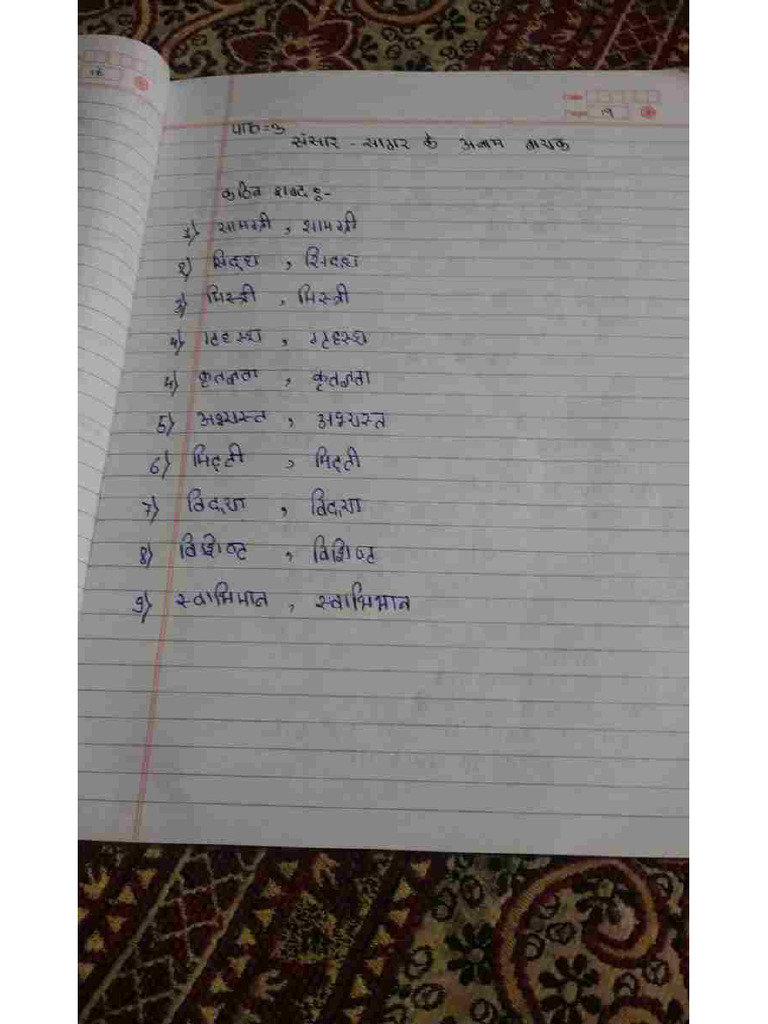 16
Date
Page 19
पाठ=3
संसार - सागर के अनाम नायक
कठिन शब्द :-
1) सामग्री , सामग्री
2) सिद्ध , सिद्ध
3) मिस्त्री , मिस्त्री
4) गृहस्थ , गृहस्थ
4) कृतज्ञता , कृतज्ञता
5) अभ्यस्त , अभ्यस्त
6) मिट्टी , मिट्टी
7) विद्या , विद्या
8) विशिष्ट , विशिष्ट
9) स्वाभिमान , स्वाभिमान